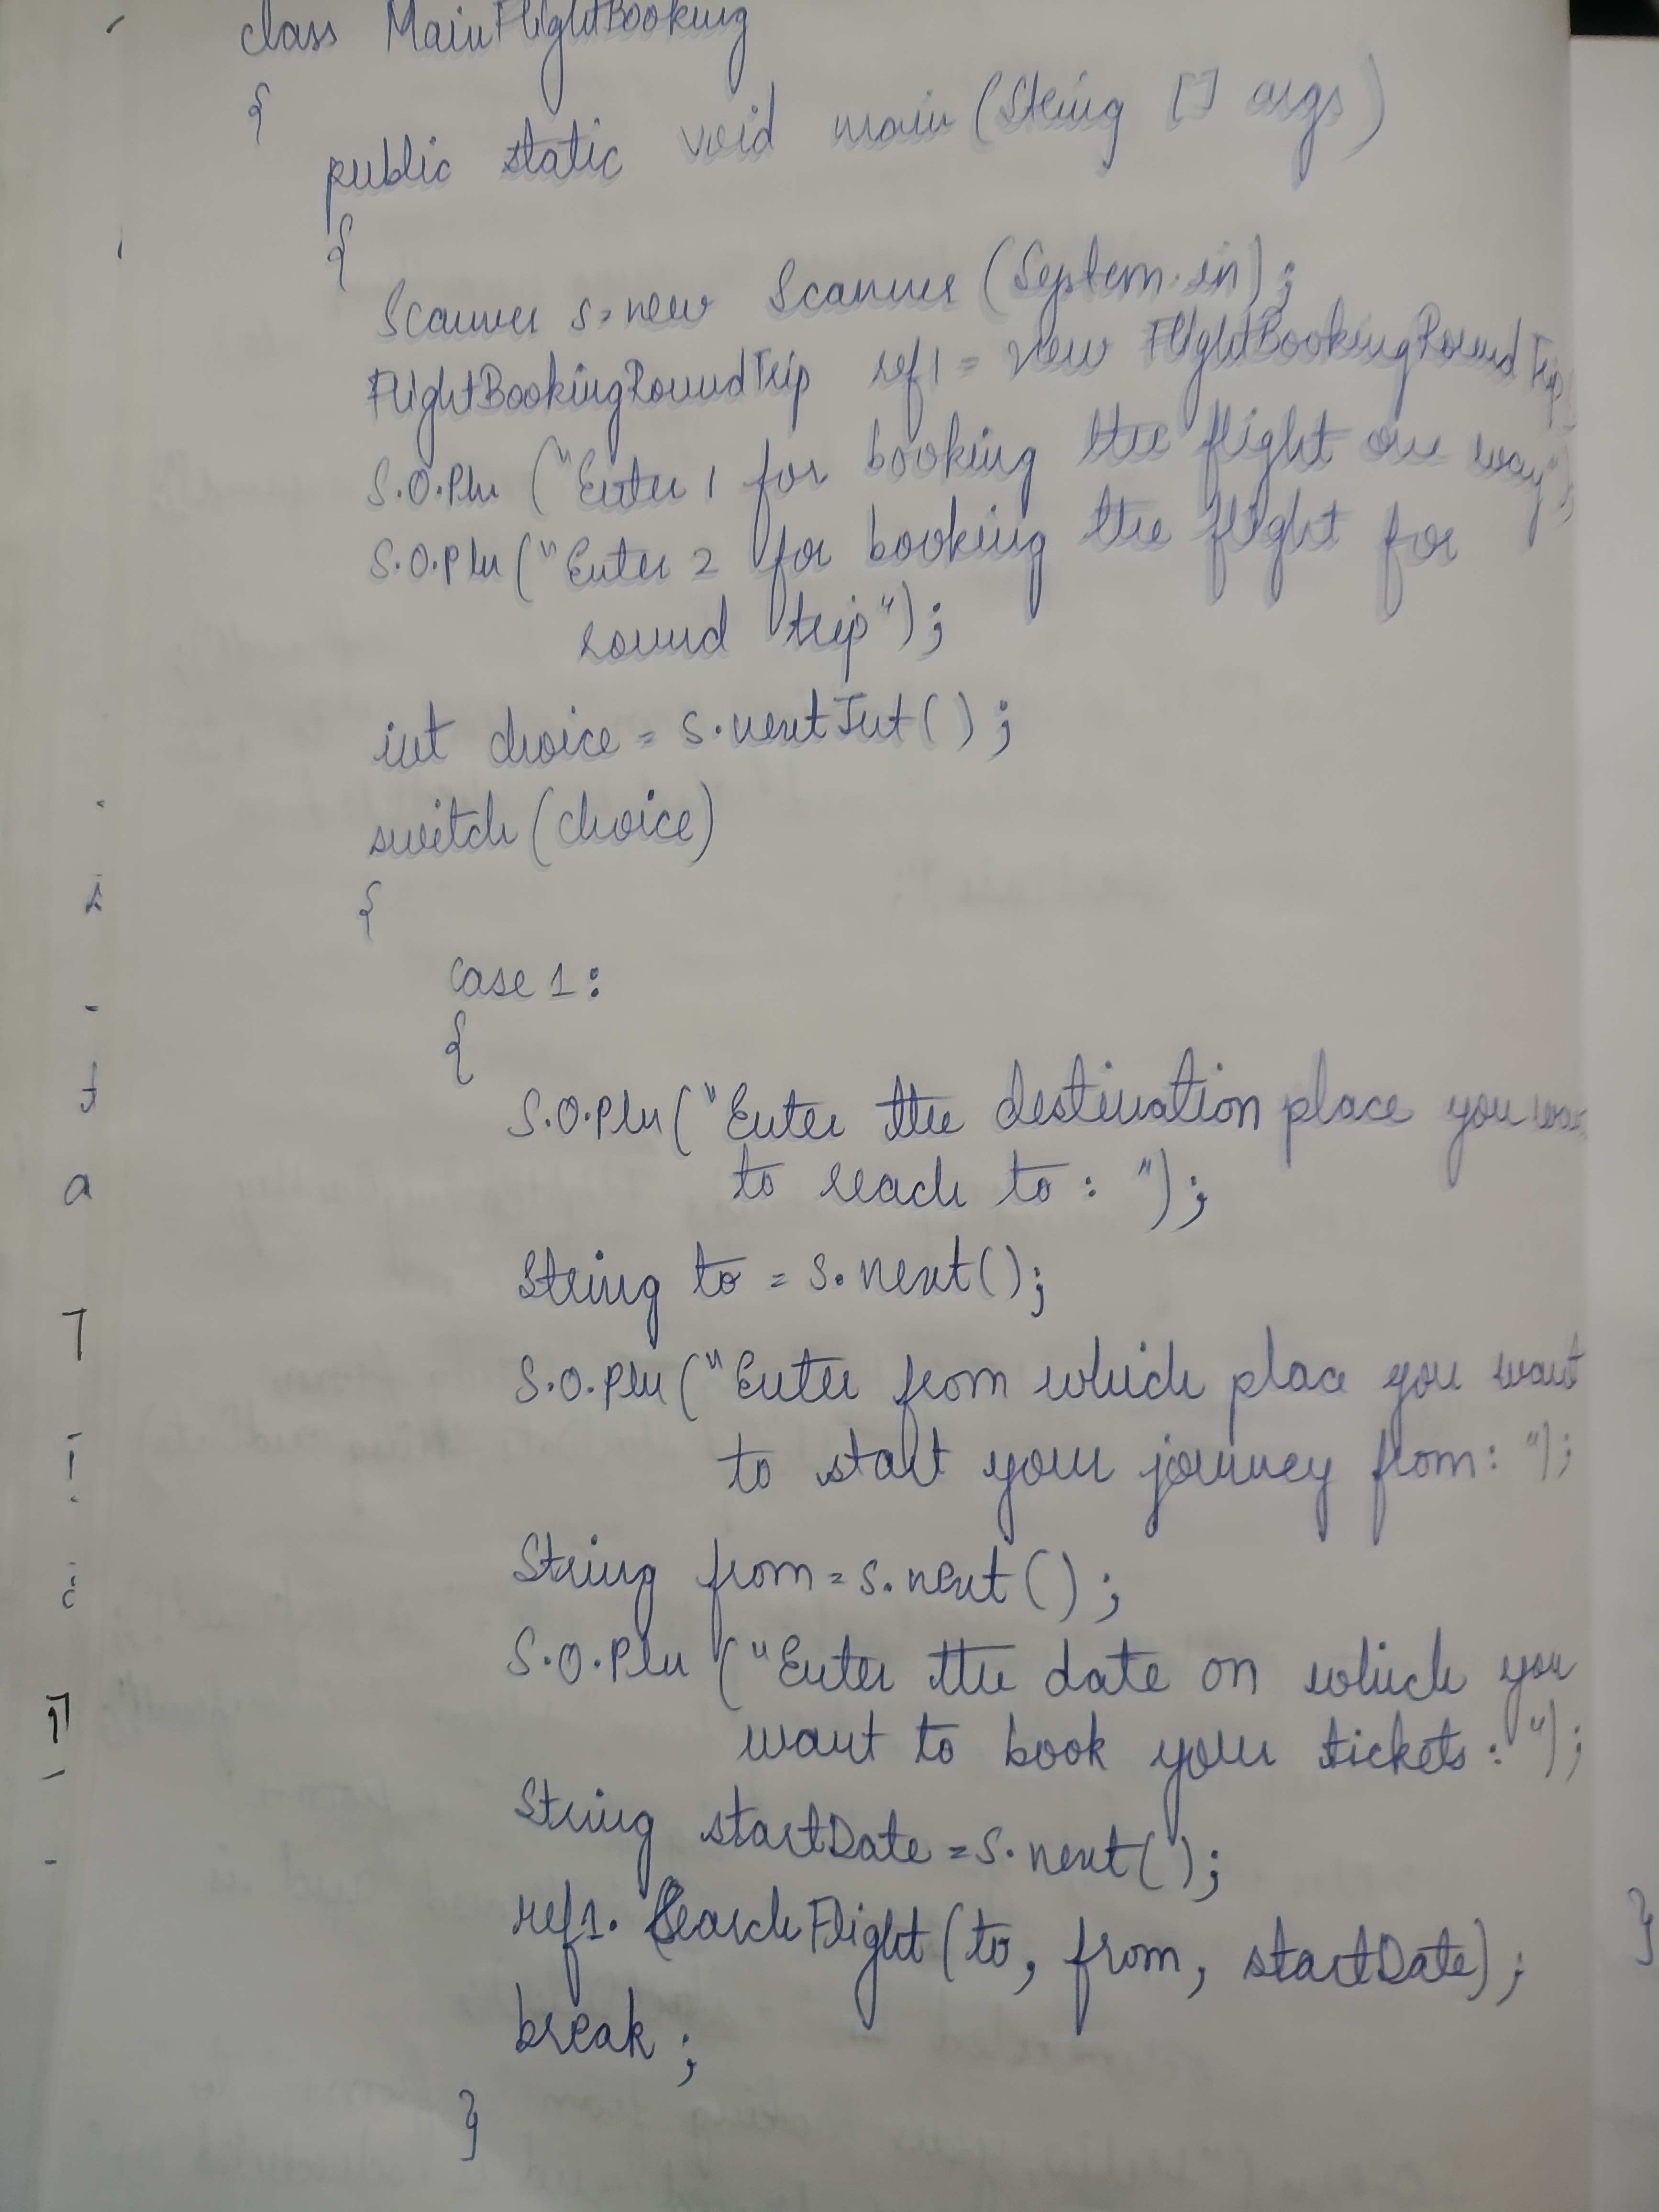 class MainFlightBooking
{
public static void main (String [] args)
{
Scanner s = new Scanner (Septem.in);
FlightBookingRoundTrip ref1 = new FlightBookingRoundTrip
S.O.Pln ("Enter 1 for booking the flight one way");
S.O.Pln ("Enter 2 for booking the flight for
round trip");
int choice = s.nextInt();
switch (choice)
{
case 1:
{
S.O.Pln ("Enter the destination place you
to reach to: ");
String to = s.next();
S.O.Pln ("Enter from which place you want
to start your journey from: ");
String from = s.next();
S.O.Pln ("Enter the date on which you
want to book your tickets: ");
String startDate = s.next();
ref1. SearchFlight (to, from, startDate);
break;
}
}